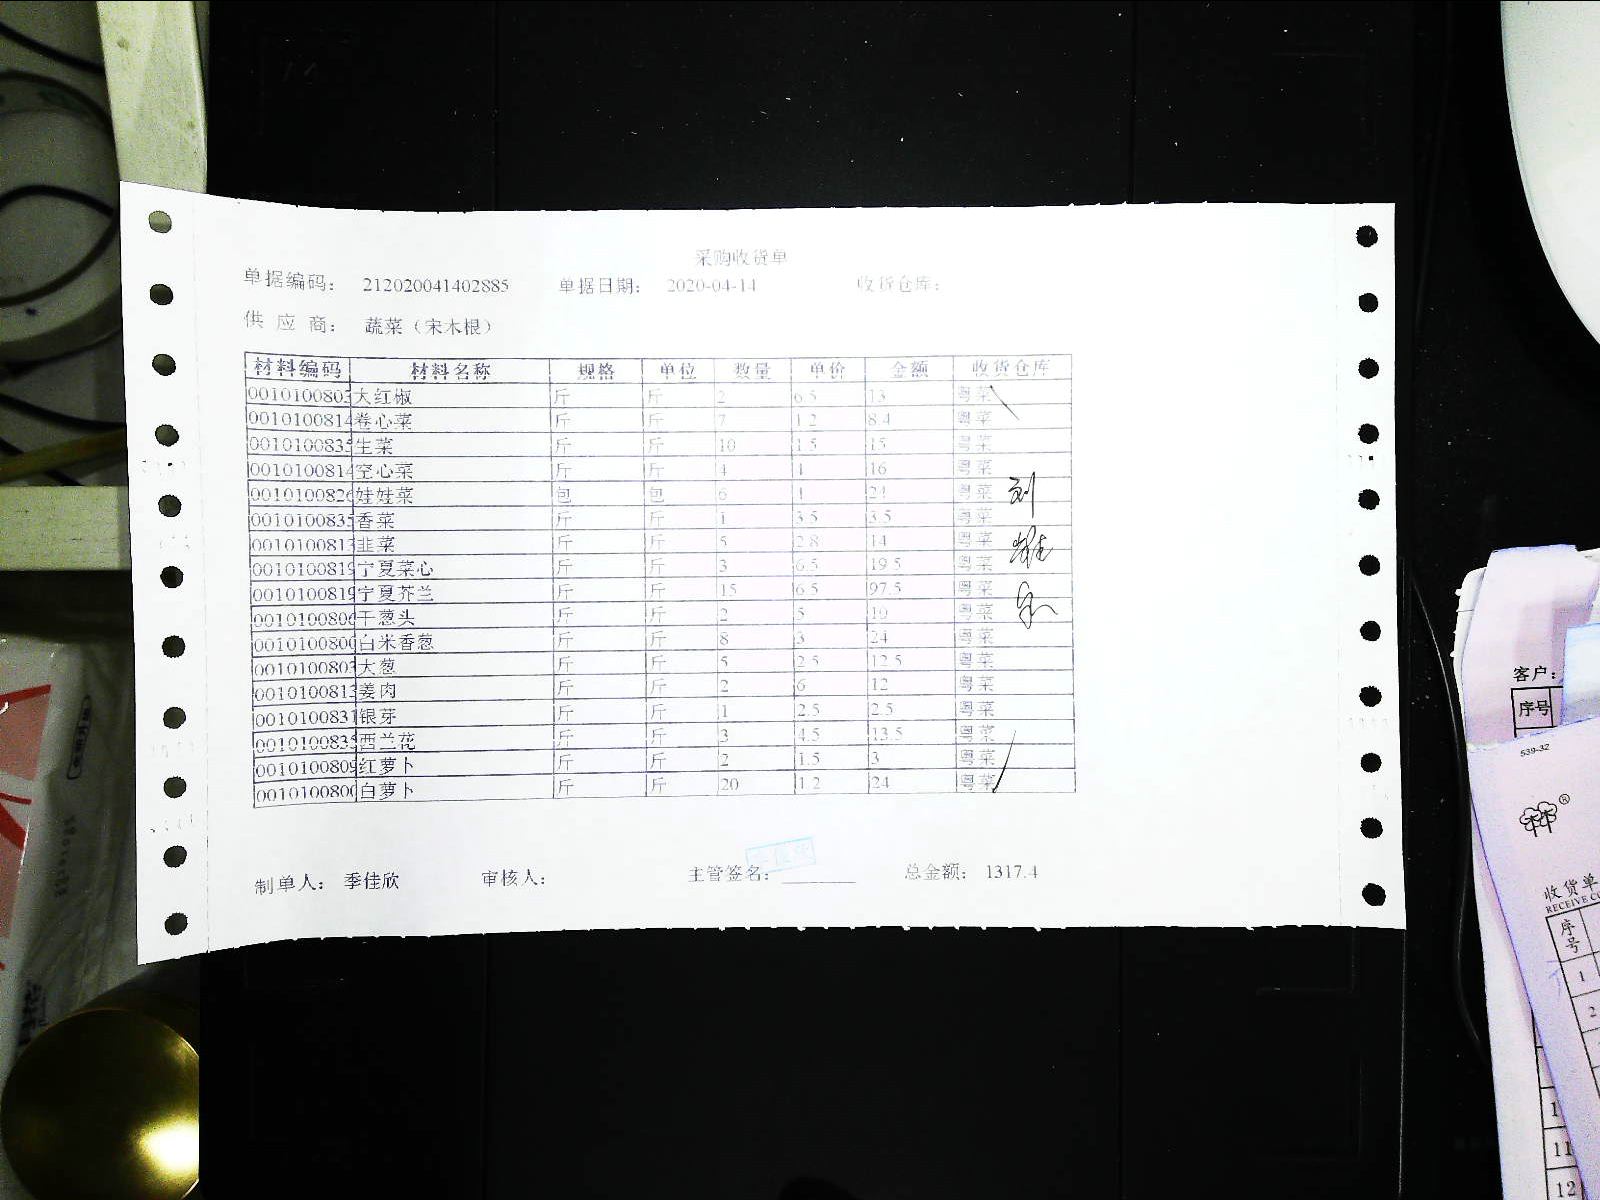 采购收货单
单据编码： 212020041402885 单据日期： 2020-04-14 收货仓库：
供 应 商： 蔬菜（宋木根）
材料编码 材料名称 规格 单位 数量 单价 金额 收货仓库
0010100803 大红椒 斤 斤 2 6.5 13 粤菜
0010100814 卷心菜 斤 斤 7 1.2 8.4 粤菜
0010100835 生菜 斤 斤 10 1.5 15 粤菜
0010100814 空心菜 斤 斤 4 4 16 粤菜
0010100826 娃娃菜 包 包 6 4 24 粤菜
0010100835 香菜 斤 斤 1 3.5 3.5 粤菜
0010100813 韭菜 斤 斤 5 2.8 14 粤菜
0010100819 宁夏菜心 斤 斤 3 6.5 19.5 粤菜
0010100819 宁夏芥兰 斤 斤 15 6.5 97.5 粤菜
0010100806 干葱头 斤 斤 2 5 10 粤菜
0010100800 白米香葱 斤 斤 8 3 24 粤菜
0010100803 大葱 斤 斤 5 2.5 12.5 粤菜
0010100813 姜肉 斤 斤 2 6 12 粤菜
0010100831 银芽 斤 斤 1 2.5 2.5 粤菜
0010100835 西兰花 斤 斤 3 4.5 13.5 粤菜
0010100809 红萝卜 斤 斤 2 1.5 3 粤菜
0010100800 白萝卜 斤 斤 20 1.2 24 粤菜
制单人： 季佳欣 审核人： 主管签名： 总金额： 1317.4
客户：
序号
539-32
收货单
序号
1
2
11
12